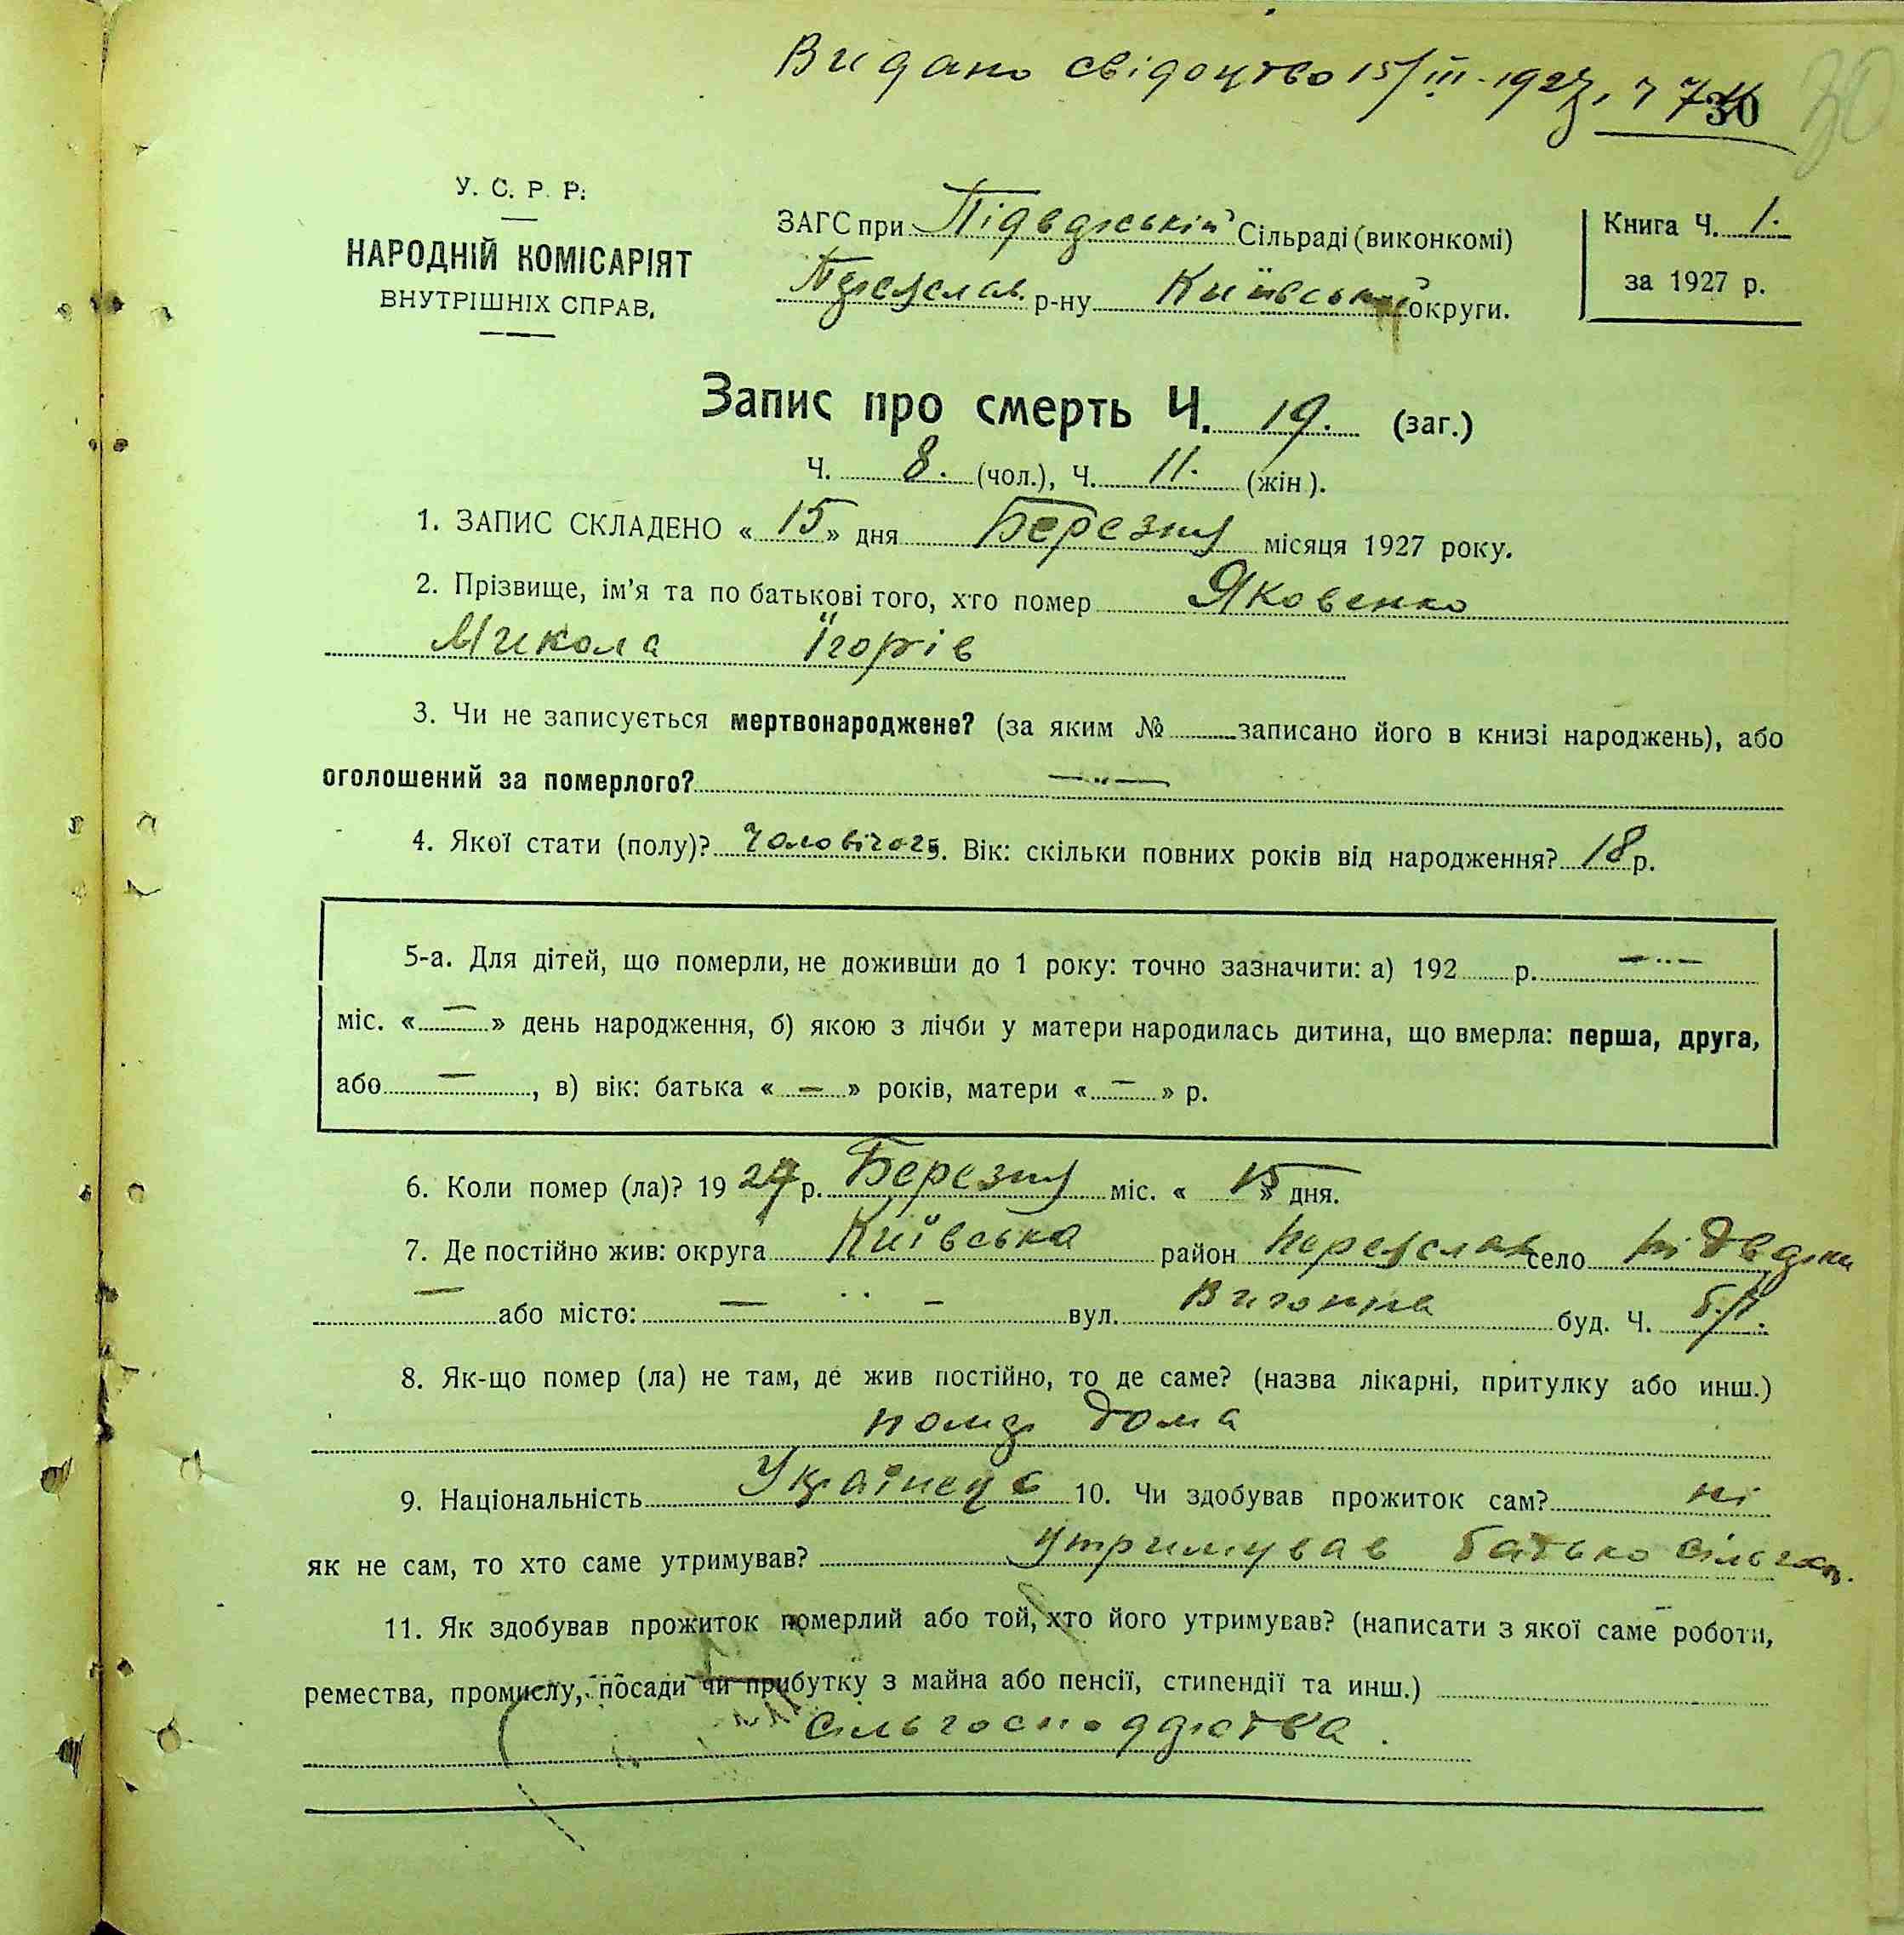 Видано свідоцтво 15/III-1927р.
30
30
У. С. Р. Р.
НАРОДНІЙ КОМІСАРІЯТ
ВНУТРІШНІХ СПРАВ.
ЗАГС при Підварській Сільраді (виконкомі)
Переяслав. р-ну Київської округи.
Книга Ч. 1.
за 1927 р.
Запис про смерть Ч. 19. (заг.)
Ч. 8. (чол.), Ч. 11. (жін.).
1. ЗАПИС СКЛАДЕНО « 15 » дня Березня місяця 1927 року.
2. Прізвище, ім'я та по батькові того, хто помер Яковенко
Микола Їгорів
3. Чи не записується мертвонароджене? (за яким № записано його в книзі народжень), або
оголошений за померлого? —"—
4. Якої стати (полу)? Чоловічої 5. Вік: скільки повних років від народження? 18 р.
5-а. Для дітей, що померли, не доживши до 1 року: точно зазначити: а) 192 р. —"—
міс. « — » день народження, б) якою з лічби у матери народилась дитина, що вмерла: перша, друга,
або —, в) вік: батька « — » років, матери « — » р.
6. Коли помер (ла)? 1927 р. Березня міс. « 15 » дня.
7. Де постійно жив: округа Київська район Переяслав село Підварки
— або місто: — " — вул. Вигонна буд. Ч. б/ч.
8. Як-що помер (ла) не там, де жив постійно, то де саме? (назва лікарні, притулку або инш.)
помер дома
9. Національність Українець 10. Чи здобував прожиток сам? ні
як не сам, то хто саме утримував? утримував батько сільгосп.
11. Як здобував прожиток померлий або той, хто його утримував? (написати з якої саме роботи,
ремества, промислу, посади чи прибутку з майна або пенсії, стипендії та инш.)
сільгосподарства.